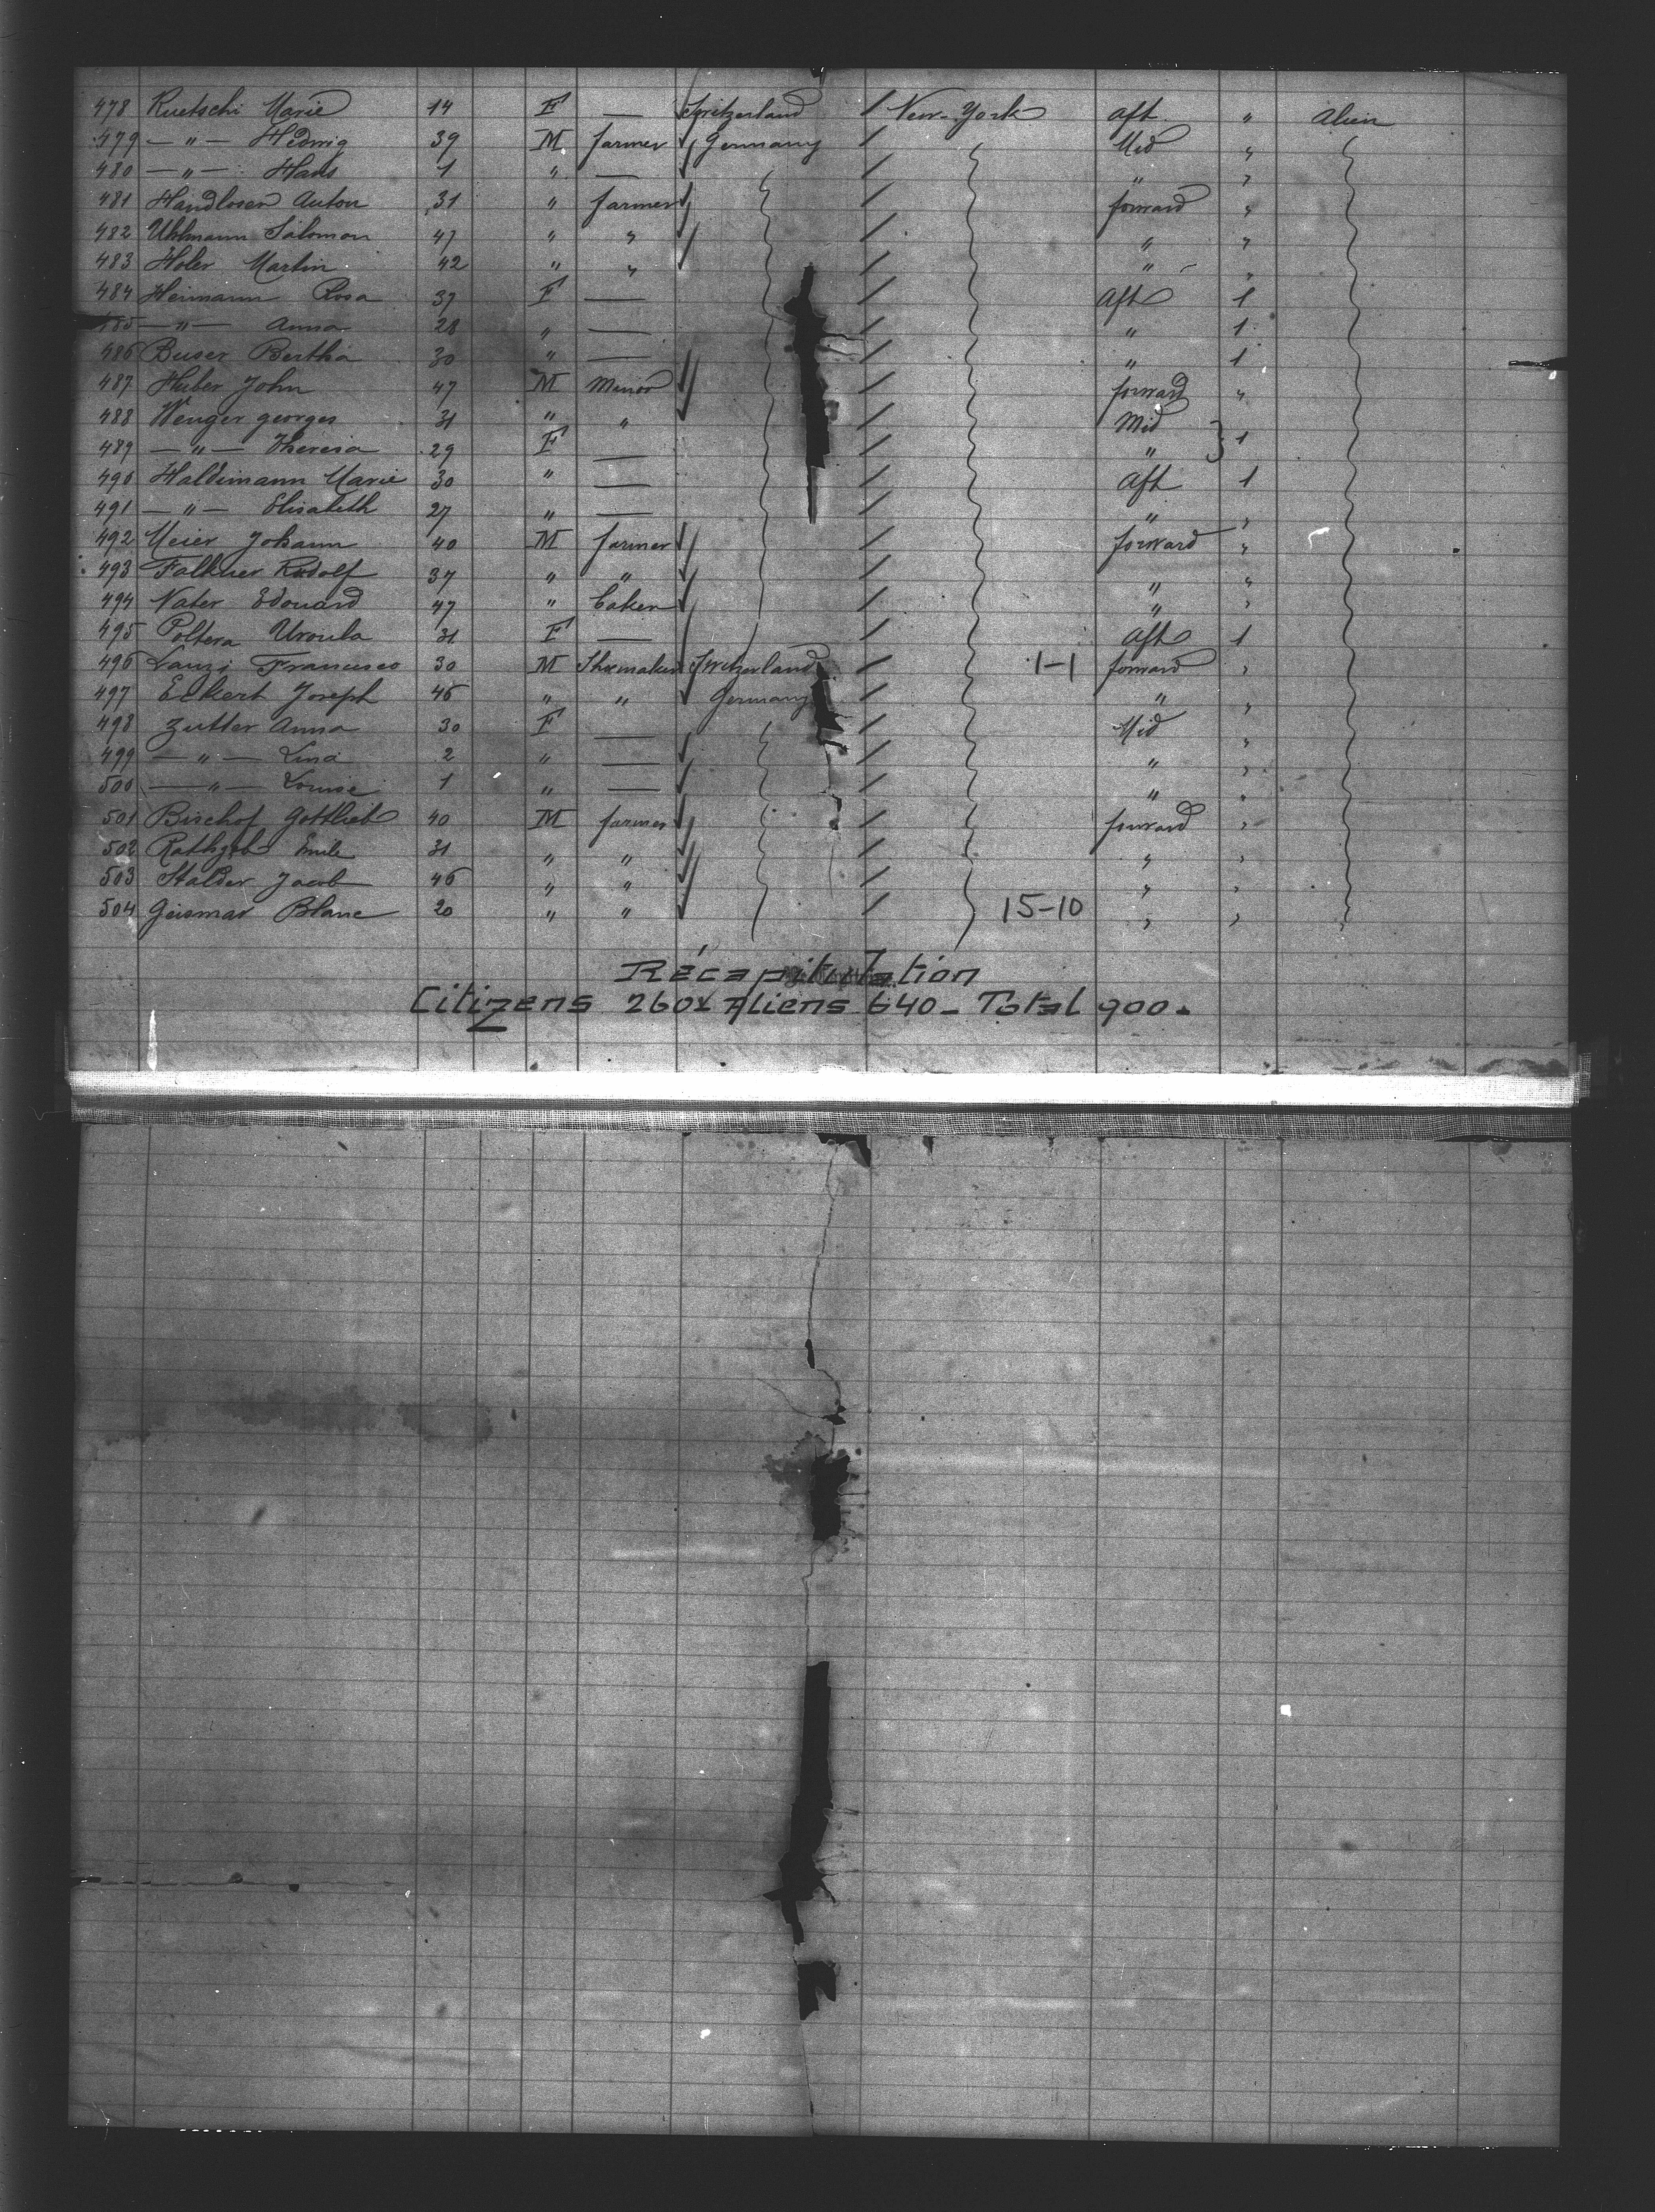 478 Ruetschi Marie 14 F — Switzerland / New-York Aft " Alien
479 — " — Hedwig 39 M farmer Germany / Mid "
480 — " — Hans 1 " — / " "
481 Handloser Anton 31 " farmer / forward "
482 Uhlmann Salomon 47 " " / " "
483 Holer Martin 42 " " / " "
484 Heimann Rosa 37 F — / Aft 1
485 — " — Anna 28 " — / " 1
486 Buser Bertha 30 " — / " 1
487 Huber John 47 M Minor / forward "
488 Wenger georges 31 " " / Mid
489 — " — Theresa 29 F — / " } 1
490 Haldimann Marie 30 " — / Aft 1
491 — " — Elisabeth 27 " — / " "
492 Meier Johann 40 M farmer / forward "
493 Falkner Rudolf 37 " " / " "
494 Nater Edouard 47 " baker / " "
495 Poltera Ursula 31 F — / Aft 1
496 Lanzi Francisco 30 M Shoemaker Switzerland / 1-1 forward "
497 Eckert Joseph 45 " " Germany / " "
498 Zutter Anna 30 F — / Mid "
499 — " — Lina 2 " — / " "
500 — " — Louise 1 " — / " "
501 Bischof Gottlieb 40 M farmer / forward "
502 Rathgeb Emile 31 " " / " "
503 Stalder Jacob 46 " " / " "
504 Geismar Blanc 20 " " / 15-10 " "
Récapitulation
Citizens 260 & Aliens 640 - Total 900.